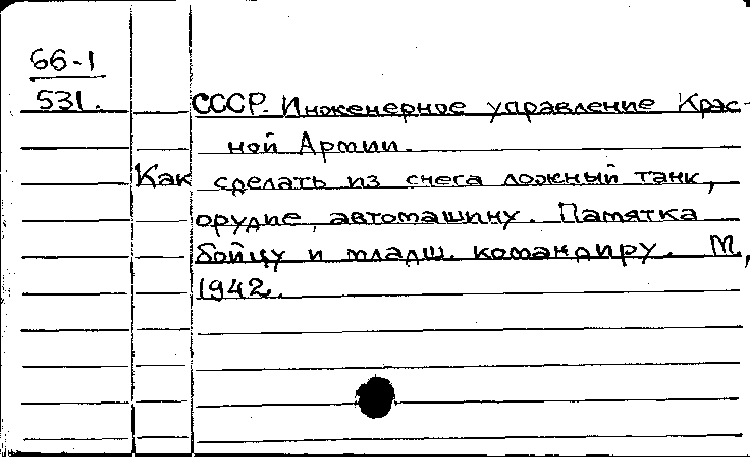 66-1
531.
СССР. Инженерное управление Крас-
ной Армии.
Как сделать из снега ложный танк,
орудие, автомашину. Памятка
бойцу и младш. командиру. М,
1942.